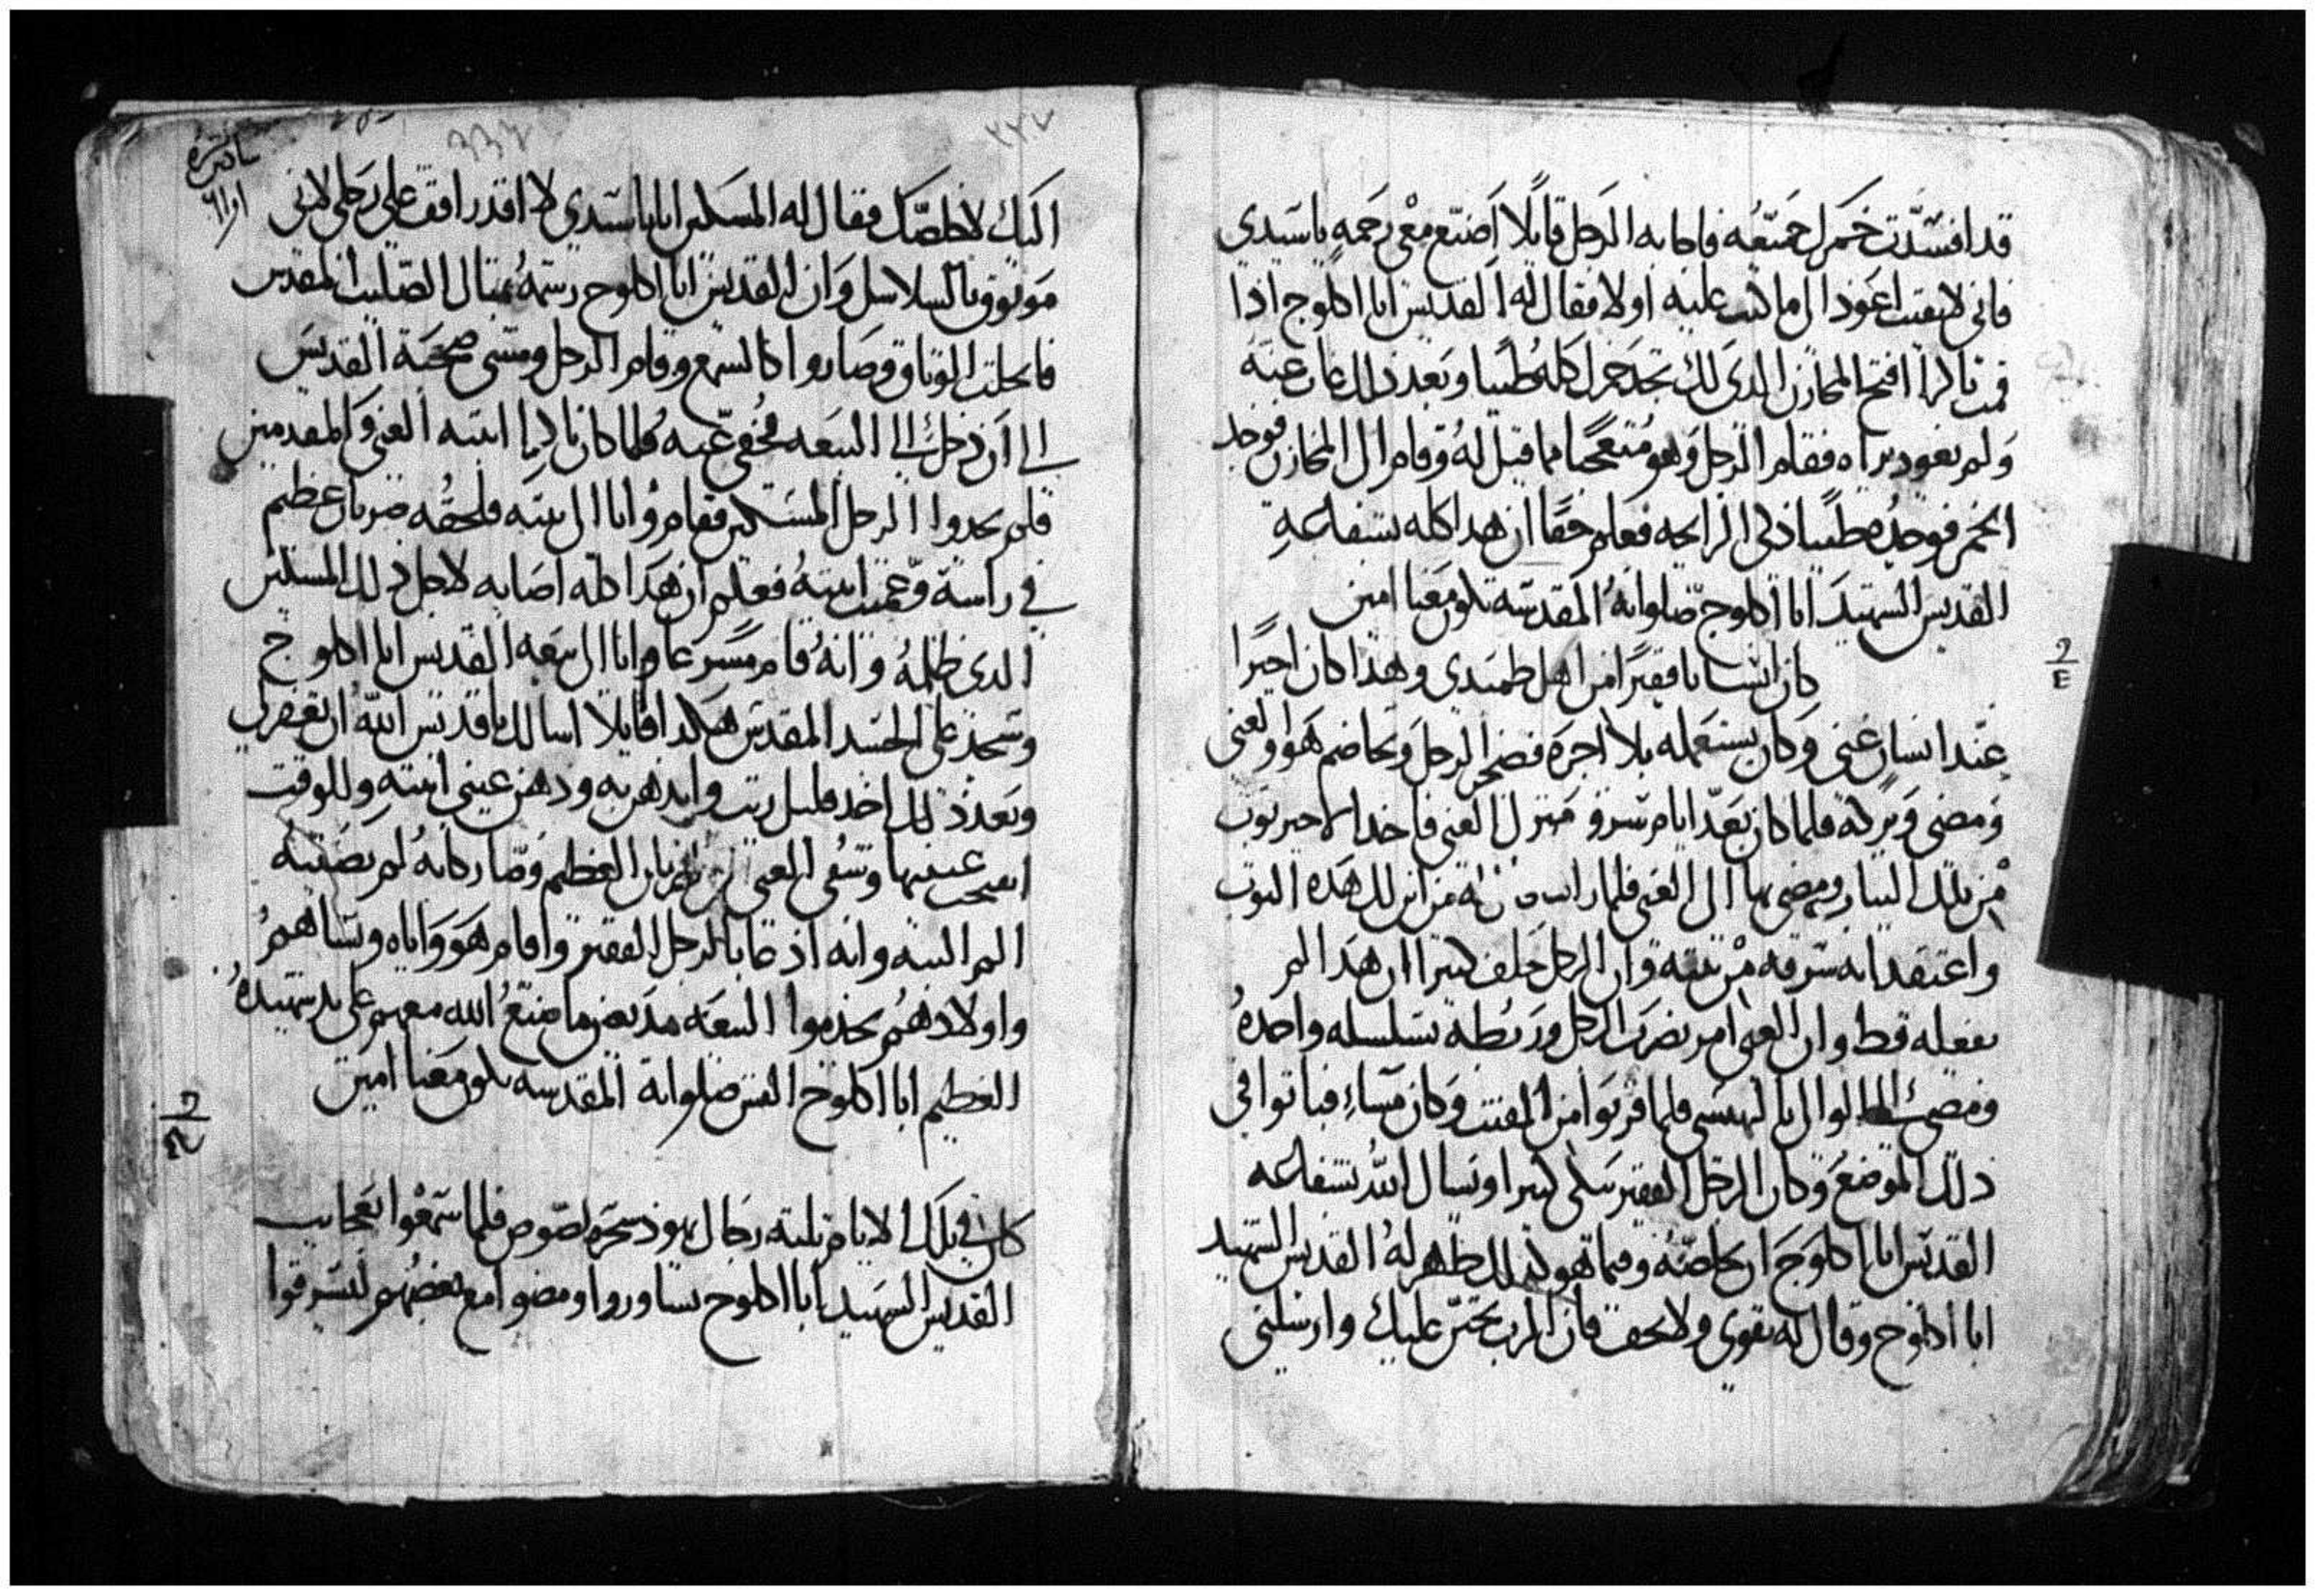 قد افسدت خمرك جميعه فاجابه الرجل قايلا اصنع معي رحمه ياسيدي
فاني لا بقيت اعود الى ما كنت عليه اولا فقال له القديس ابا اكلوج اذا
قمت باكرا افتح المخازن الذي لك تجد خمرك كله طيبا وبعد ذلك غاب عنه
ولم يعود يراه فقام الرجل وهو متعجبا مما قيل له وقام الى المخازن فوجد
الخمر فوجده طيبا ذكي الرايحه فعلم حقا ان هدا كله بشفاعه
القديس الشهيد ابا اكلوج صلواته المقدسه تكون معنا امين
كان انسانا فقيرا من اهل طمبدي وهذا كان اجيرا
عند انسان غني وكان يستعمله بلا اجره فضجر الرجل وتخاصم هو والغني
ومضى وتركه فلما كان بعد ايام سرق منزل الغني فاخذ الاجير توب
من تلك التياب ومضى بها الى الغني فلما راه من اين لك هذه التوب
واعتقد انه سرقه من بيته وان الرجل حلف كتيرا ان هذا لم
يفعله قط وان الغني امر بضرب الرجل وربطه بسلسله واحده
ومضى الى البهنسى فلما قربوا من المفتت وكان مساء فباتوا في
ذلك الموضع وكان الرجل الفقير يبكي كتيرا ويسال الله بشفاعه
القديس ابا اكلوج ان يخلصه وفيما هو كذلك ظهر له القديس الشهيد
ابا اكلوج وقال له تقوى ولا تخف فان الرب تحنن عليك وارسلني
٢٢٧
اليك لاخلصك فقال له المسكين انا ياسيدي لا اقدر اقف على رجلي لاني
موثوق بالسلاسل وان القديس ابا اكلوج رسمه بمثال الصليب المقدس
فانحلت الوثاق وصاروا كالشمع وقام الرجل ومشى صحبة القديس
الى ان دخل الى البيعه مخفى عنه فلما كان باكرا انتبه الغني والمقدمين
فلم يجدوا الرجل المسكين فقام واتا الى بيته فلحقه ضربان عظيم
في راسه وعميت ابنته فعلم ان هذا كله اصابه لاجل ذلك المسكين
الدي ظلمه وانه قام مسرعا واتا الى بيعه القديس ابا اكلوج
وسجد على الجسد المقدس هكدا قايلا اسالك يا قديس الله ان تغفر لي
وبعد ذلك اخد قليل زيت وادهن به ودهن عيني ابنته وللوقت
انفتحت عينيها وشفي الغني من الضربان العظيم وصار كانه لم يصيبه
الم البته وانه اد طابا الرجل الفقير واقام هو واياه ونساهم
واولادهم يخدموا البيعه مديعين ما صنع الله معهم على يد شهيده
العظيم ابا اكلوج القس صلواته المقدسه تكون معنا امين
كان في تلك الايام تلته رجال يهود سحره لصوص فلما سمعوا بعجايب
القديس الشهيد ابا اكلوج تشاوروا ومضوا مع بعضهم ليسرقوا